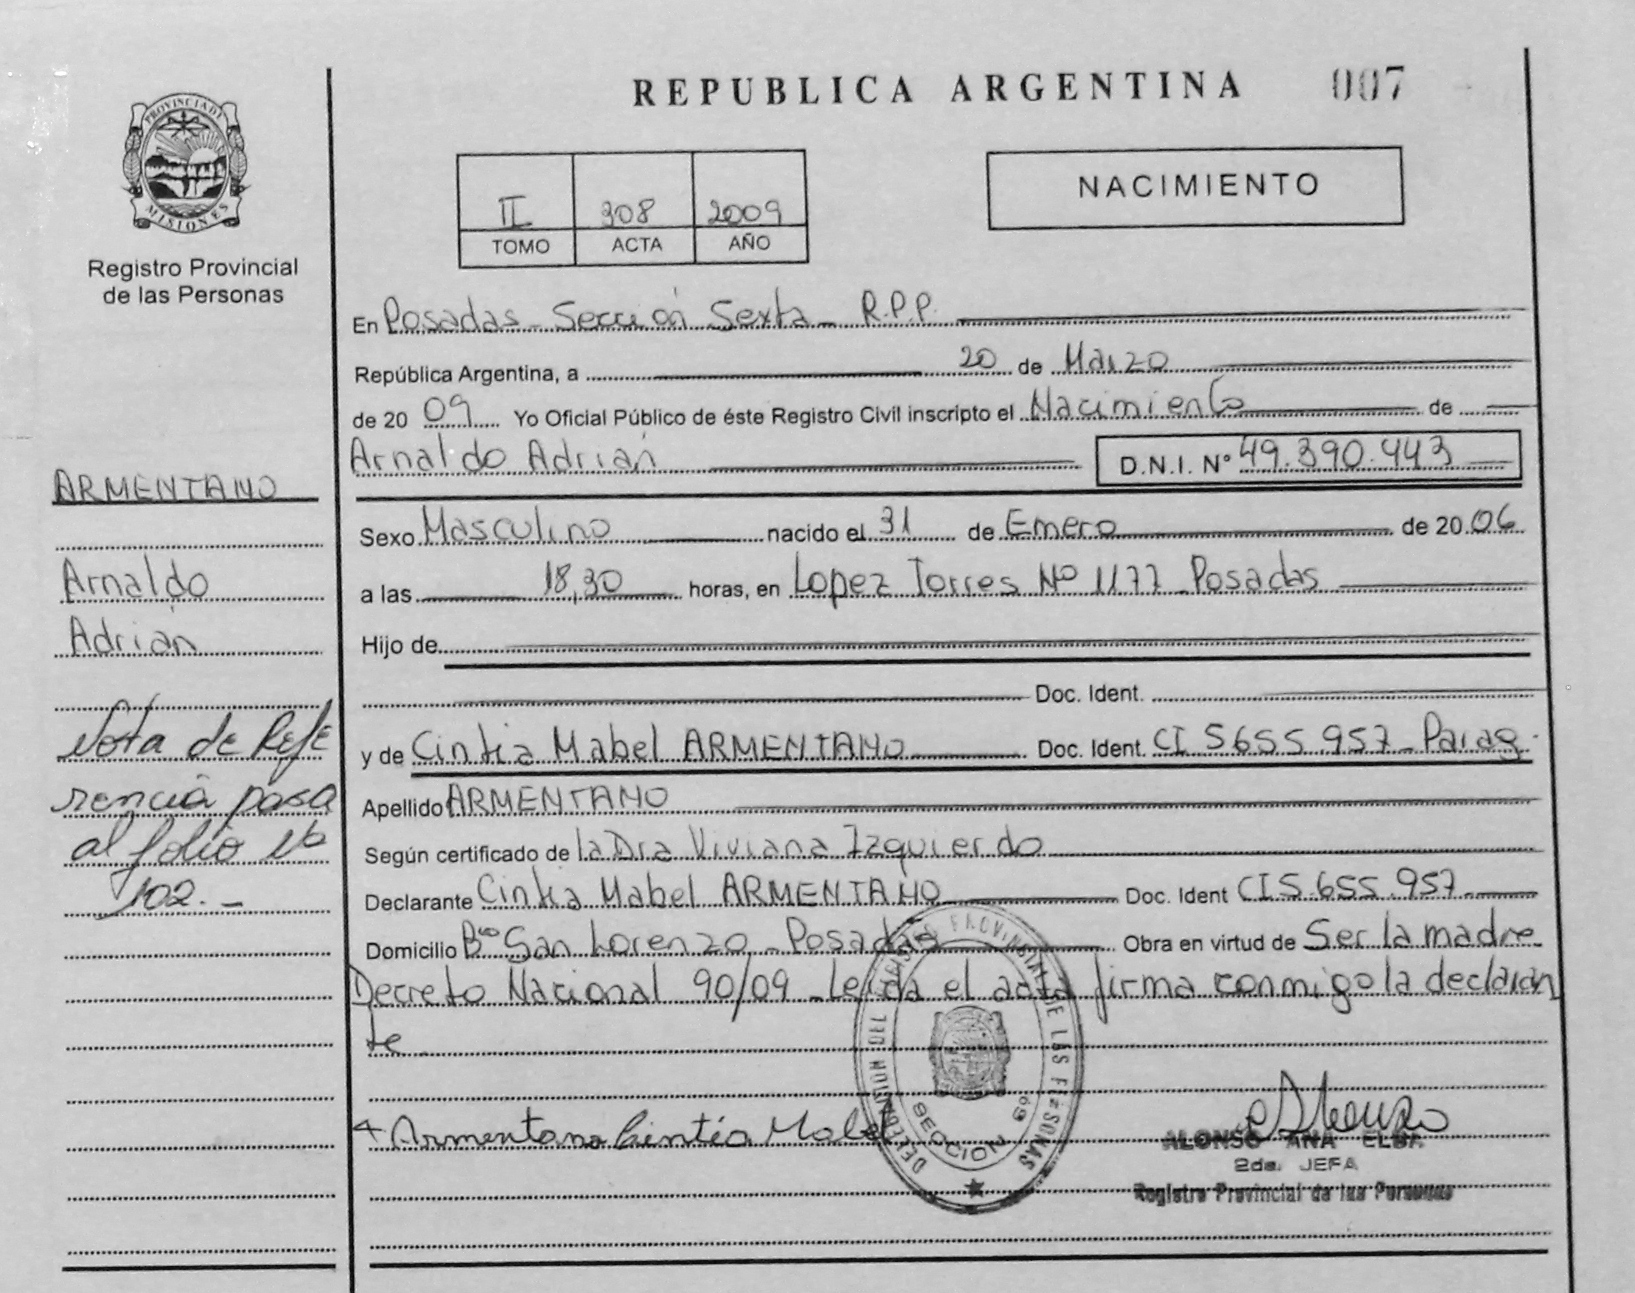 REPUBLICA ARGENTINA 007
PROVINCIA DE
MISIONES
Registro Provincial
de las Personas
II 308 2009
TOMO ACTA AÑO
NACIMIENTO
En Posadas - Sección Sexta - R.P.P.
República Argentina, a 20 de Marzo
de 20 09 Yo Oficial Público de éste Registro Civil inscripto el Nacimiento de
Arnaldo Adrián D.N.I. Nº 49.390.443
ARMENTANO
Arnaldo
Adrián
Nota de Refe
rencia pasa
al folio Nº
102.-
Sexo Masculino nacido el 31 de Enero de 20 06
a las 18,30 horas, en Lopez Torres Nº 1177 - Posadas
Hijo de
Doc. Ident.
y de Cintia Mabel ARMENTANO Doc. Ident. CI 5655.957 - Parag.
Apellido ARMENTANO
Según certificado de la Dra Viviana Izquierdo
Declarante Cintia Mabel ARMENTANO Doc. Ident CI 5.655.957
Domicilio Bº San Lorenzo - Posadas Obra en virtud de Ser la madre
Decreto Nacional 90/09 - Leída el acta firma conmigo la declaran
te
DELEGACION DEL REGISTRO PROVINCIAL DE LAS PERSONAS
SECCION 6ª
Armentano Cintia Mabel
ALONSO ANA ELBA
2da. JEFA
Registro Provincial de las Personas